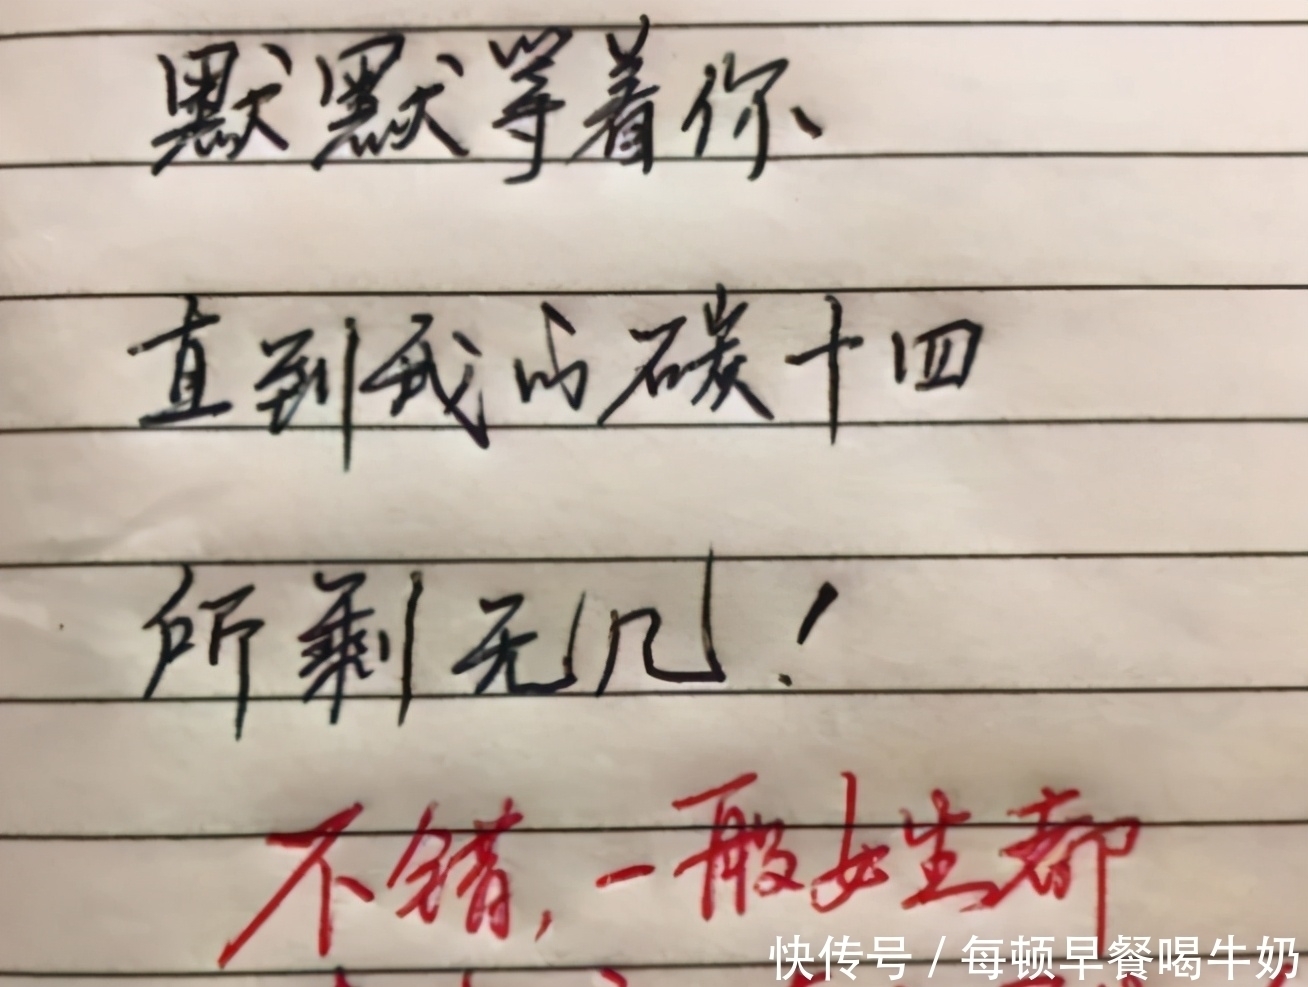 默默等着你
直到我的碳十四
所剩无几!
不错,一般女生都
快传号/每顿早餐喝牛奶